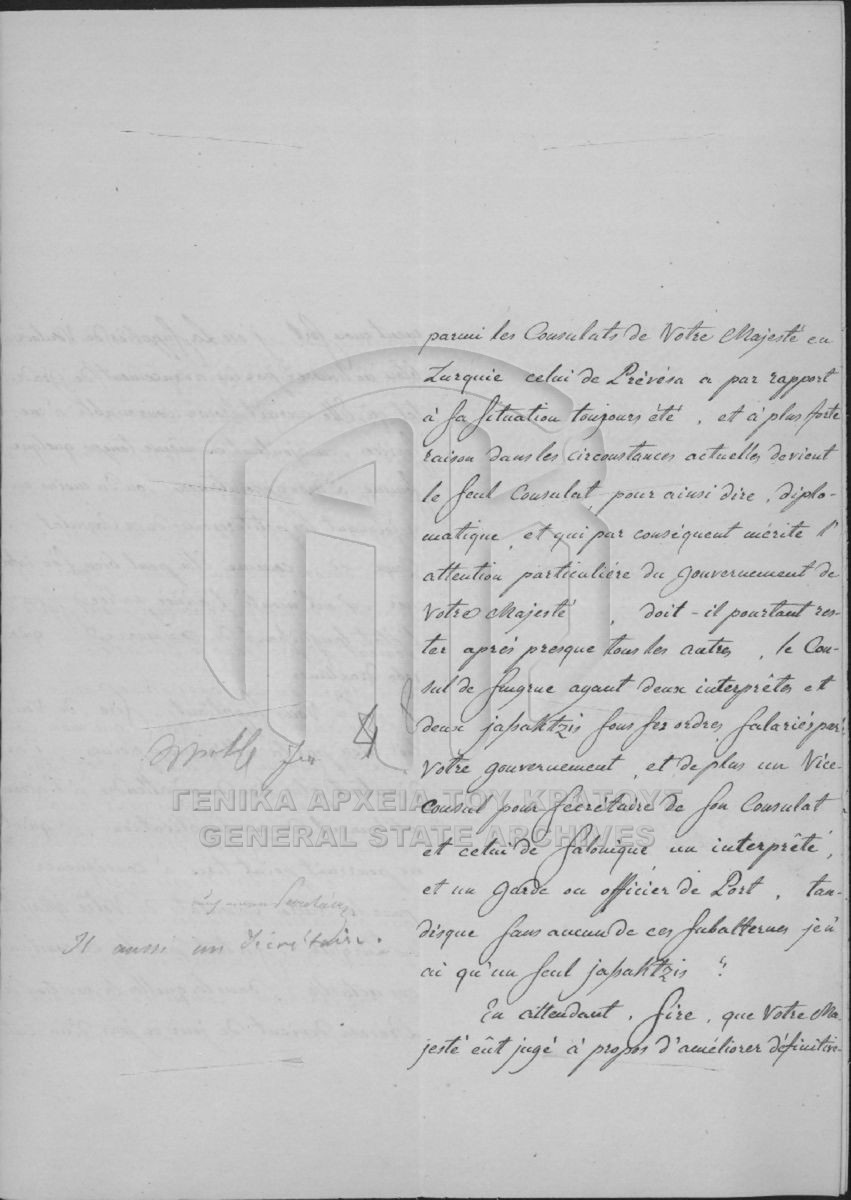 parmi les Consulats de Votre Majesté en
Turquie celui de Prévésa a par rapport
à sa situation toujours été, et à plus forte
raison dans les circonstances actuelles devient
le seul Consulat, pour ainsi dire, diplo-
matique, et qui par conséquent mérite l'
attention particulière du gouvernement de
Votre Majesté, doit-il pourtant res-
ter après presque tous les autres, le Con-
sul de Smyrne ayant deux interprêtes et
deux jasaktzis sous ses ordres salariés par
Votre gouvernement, et de plus un Vice-
Consul pour Secrétaire de son Consulat
et celui de Salonique un interprêté,
et un Garde ou officier de Port, tan-
disque sans aucun de ces subalternes je n'
ai qu'un seul jasaktzis?
En attendant, Sire, que Votre Ma-
jesté eût jugé à propos d'améliorer définitive-
Il aussi un Secrétaire.
ΓΕΝΙΚΑ ΑΡΧΕΙΑ ΤΟΥ ΚΡΑΤΟΥΣ
GENERAL STATE ARCHIVES